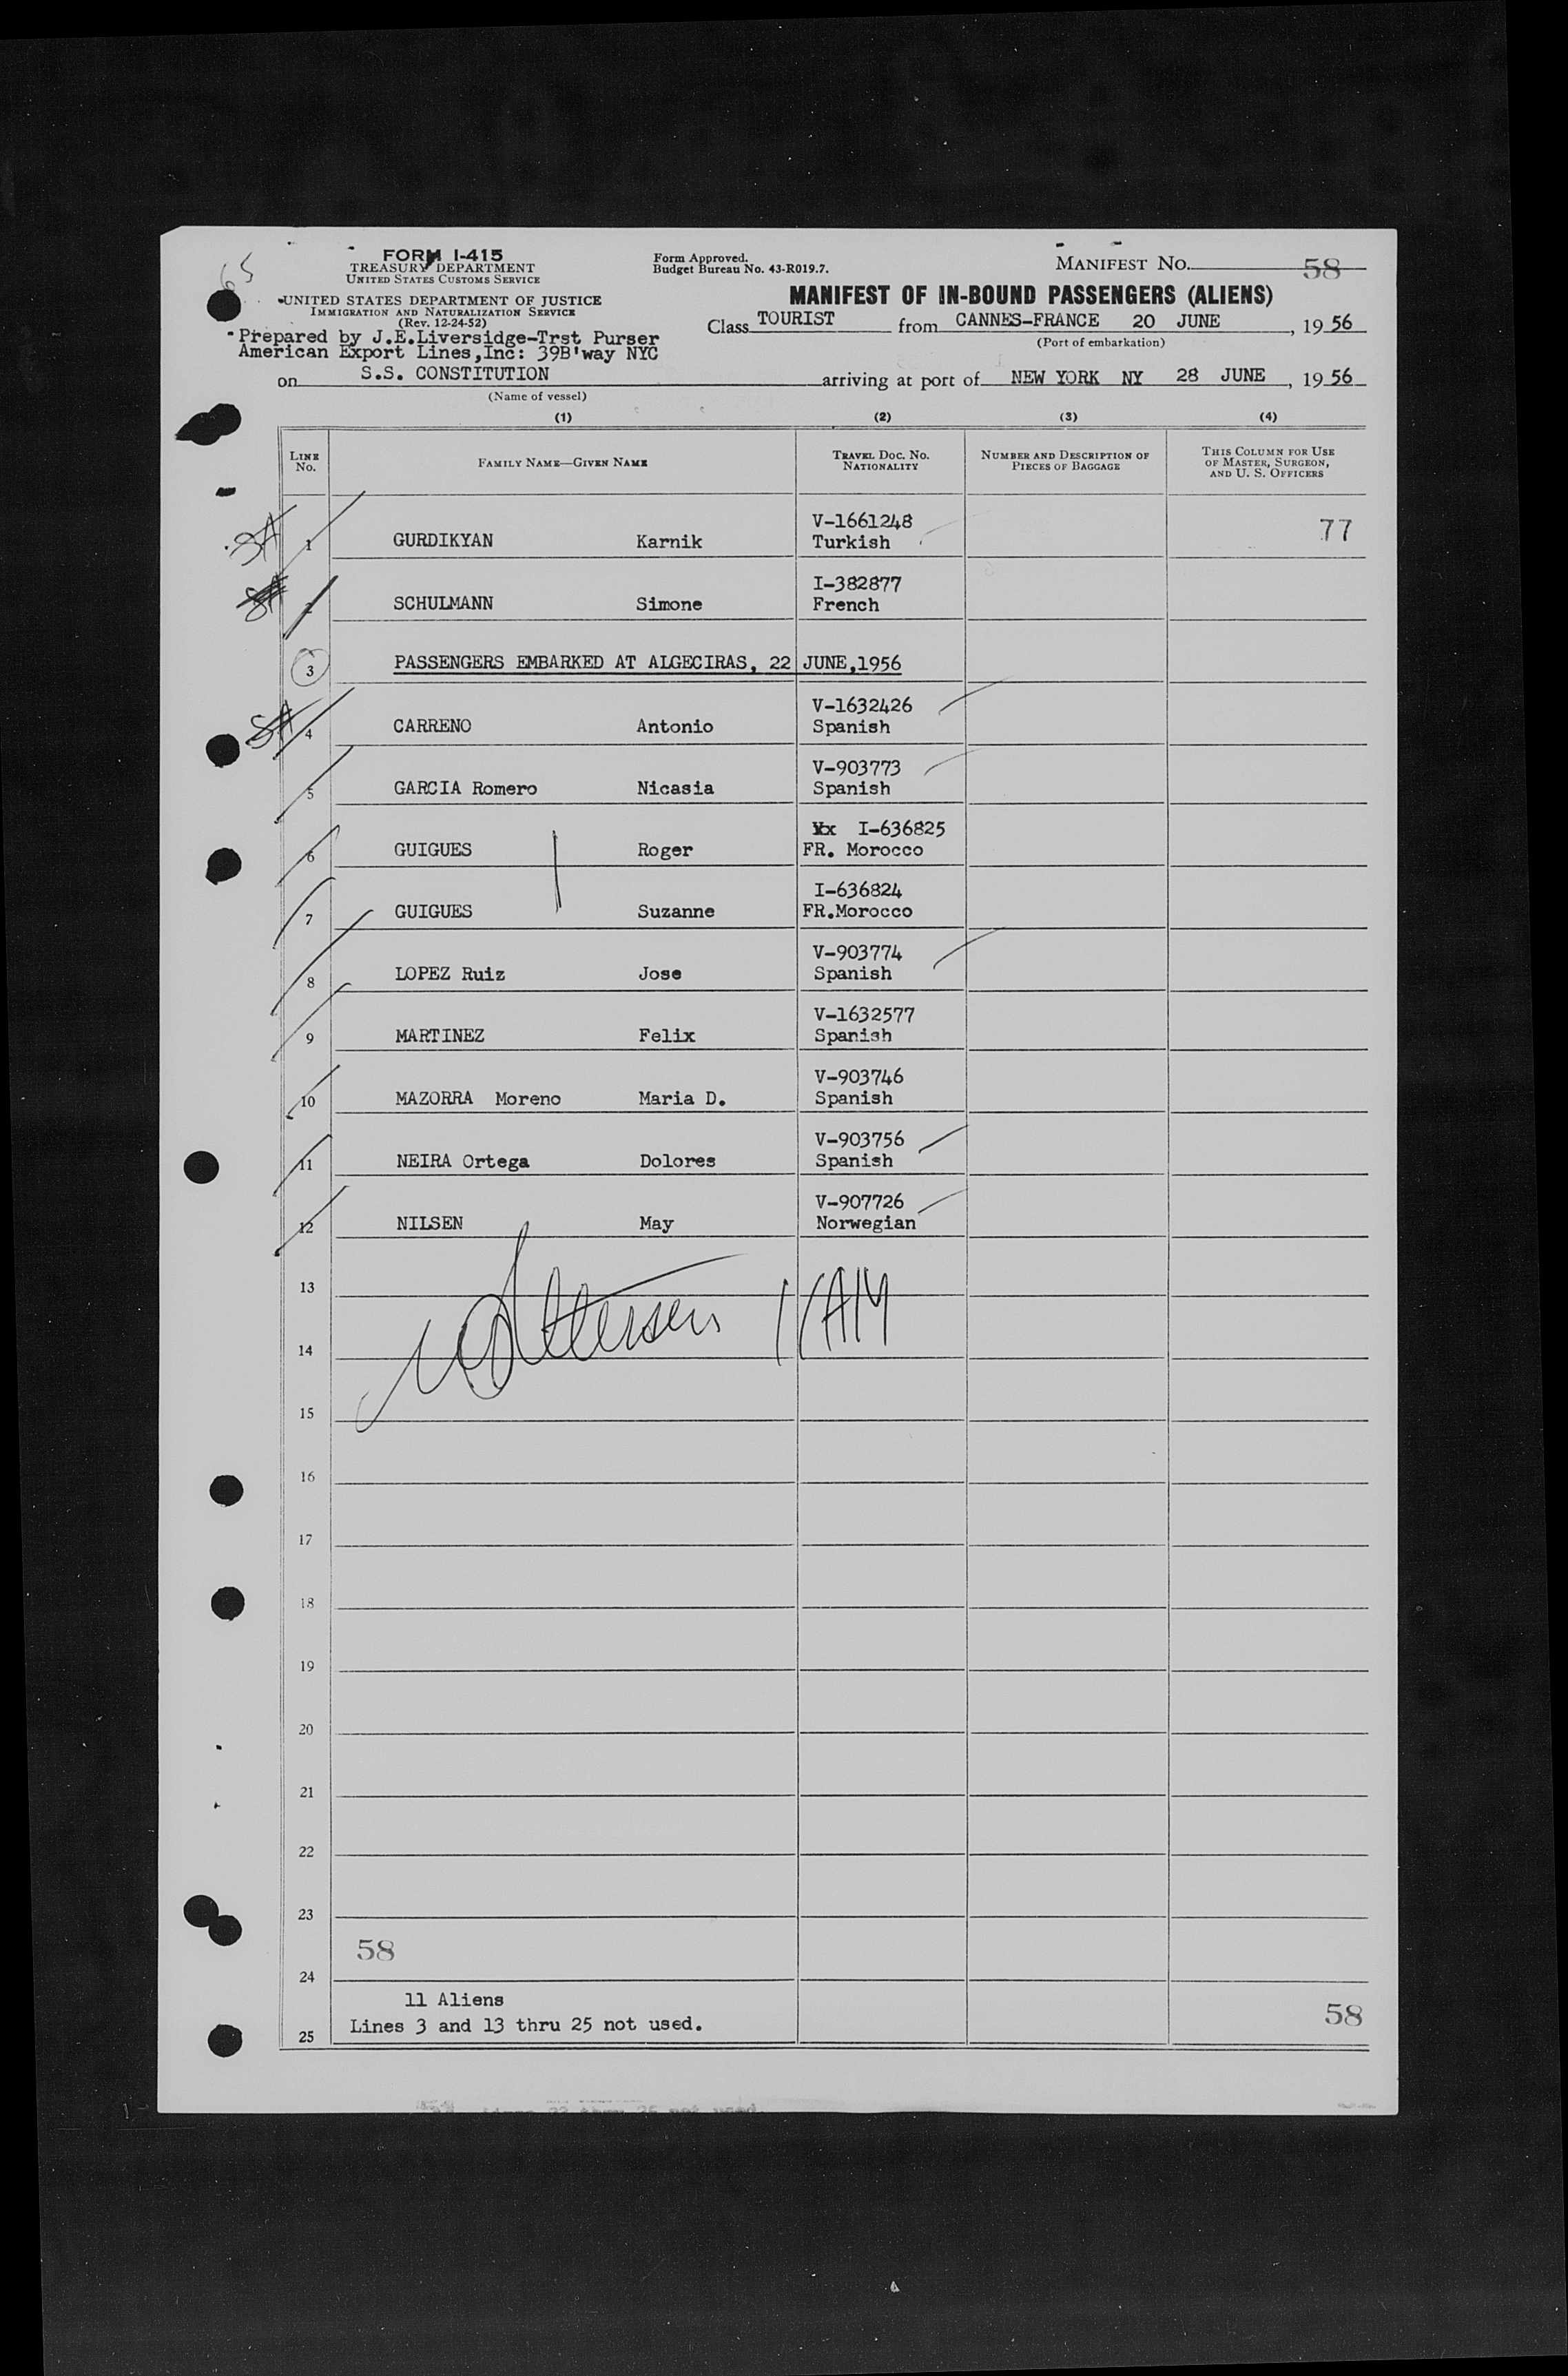 65
FORM I-415
TREASURY DEPARTMENT
UNITED STATES CUSTOMS SERVICE
UNITED STATES DEPARTMENT OF JUSTICE
IMMIGRATION AND NATURALIZATION SERVICE
(Rev. 12-24-52)
Prepared by J.E.Liversidge-Trst Purser
American Export Lines,Inc: 39B'way NYC
Form Approved.
Budget Bureau No. 43-R019.7.
MANIFEST NO. 58
MANIFEST OF IN-BOUND PASSENGERS (ALIENS)
Class TOURIST from CANNES-FRANCE 20 JUNE, 19 56
(Port of embarkation)
on S.S. CONSTITUTION arriving at port of NEW YORK NY 28 JUNE, 19 56
(Name of vessel)
(1) (2) (3) (4)
LINE NO. FAMILY NAME—GIVEN NAME TRAVEL DOC. NO. NATIONALITY NUMBER AND DESCRIPTION OF PIECES OF BAGGAGE THIS COLUMN FOR USE OF MASTER, SURGEON, AND U. S. OFFICERS
V-1661248
1 GURDIKYAN Karnik Turkish 77
I-382877
2 SCHULMANN Simone French
3 PASSENGERS EMBARKED AT ALGECIRAS, 22 JUNE,1956
V-1632426
4 CARRENO Antonio Spanish
V-903773
5 GARCIA Romero Nicasia Spanish
I-636825
6 GUIGUES Roger FR. Morocco
I-636824
7 GUIGUES Suzanne FR.Morocco
V-903774
8 LOPEZ Ruiz Jose Spanish
V-1632577
9 MARTINEZ Felix Spanish
V-903746
10 MAZORRA Moreno Maria D. Spanish
V-903756
11 NEIRA Ortega Dolores Spanish
V-907726
12 NILSEN May Norwegian
13
14
15
16
17
18
19
20
21
22
23
58
24
11 Aliens
25 Lines 3 and 13 thru 25 not used. 58